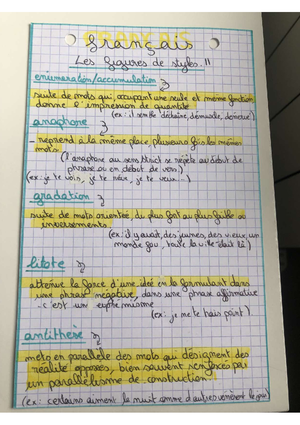 français
Les figures de styles !!
enumaration/accumulation
suite de mots qui occupant une seule et meme fonction
donne l'impression de quantité
(ex: il semble déchaine, demuscle,
anaphore
reprend à la même place plusieurs fois les mêmes
mots
(l'anaphore au sens strict se répète au debut de
phrase ou en debut de vers)
(ex: je te vois, je te rêve, je te veux ...)
gradation
suite de mots orientée du plus fort au plus faible ou
inversements
(ex: il y avait, des jeunes, des vieux, un
monde fou, toute la ville était là)
litote
atténue la force d'une idée en la formulant dans
une phrase négative, dans une phrase affirmative
c'est un euphemisme
(ex: je ne te hais point)
antithèse
mets en parallèle des mots qui désignent des
réalité opposés, bien souvent renforcés par
un parallélisme de construction
(ex: certains aiment la nuit comme d'autres vénèrent le jour)